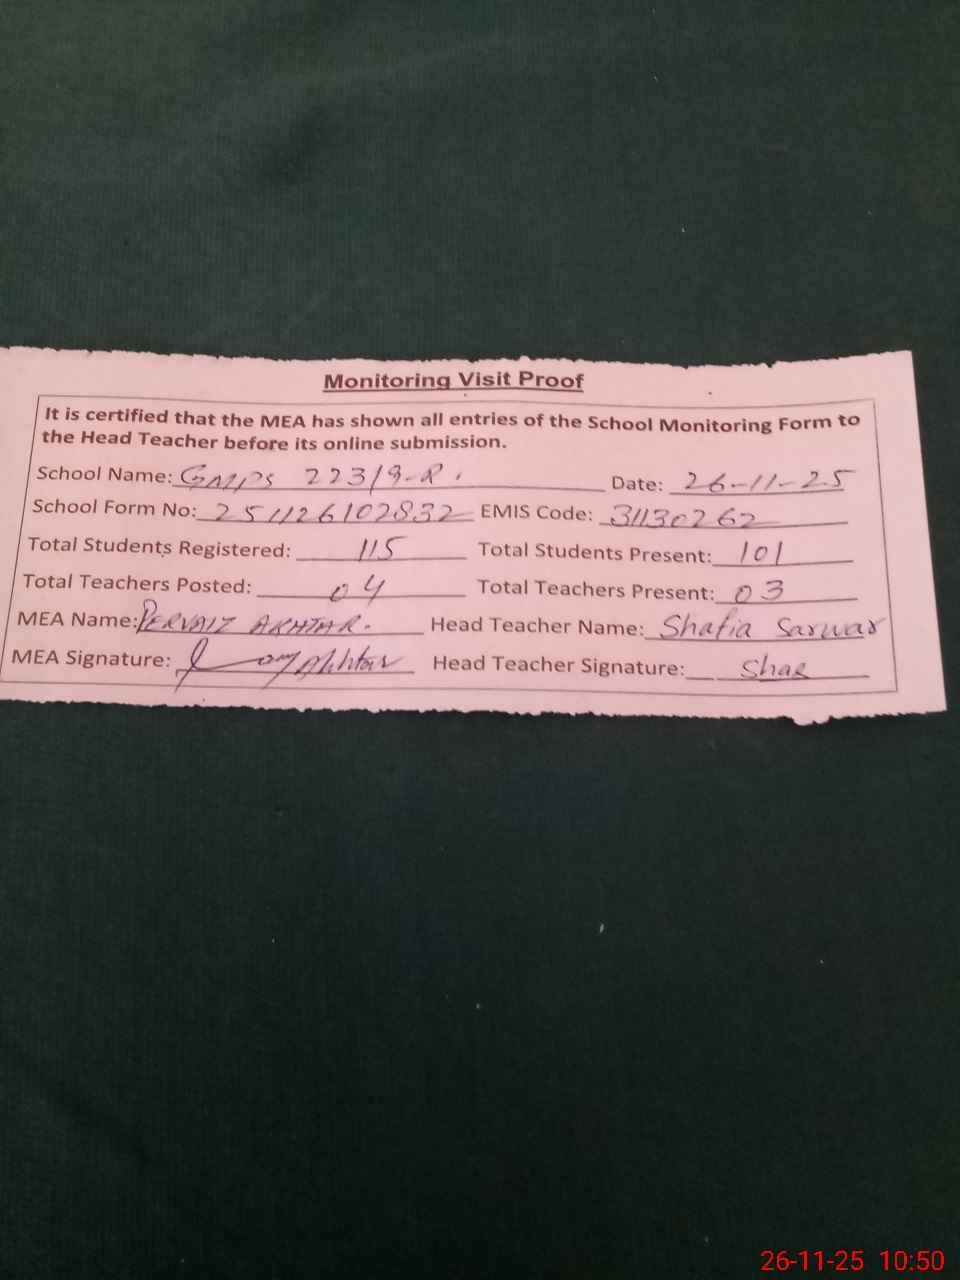 Monitoring Visit Proof
It is certified that the MEA has shown all entries of the School Monitoring Form to
the Head Teacher before its online submission.
School Name: 223/9-R. Date: 26-11-25
School Form No: 251126102832 EMIS Code: 31130262
Total Students Registered: 115 Total Students Present: 101
Total Teachers Posted: 04 Total Teachers Present: 03
MEA Name: PERVAIZ AKHTAR. Head Teacher Name: Shafia Sarwar
MEA Signature: Akhtar Head Teacher Signature:
26-11-25 10:50